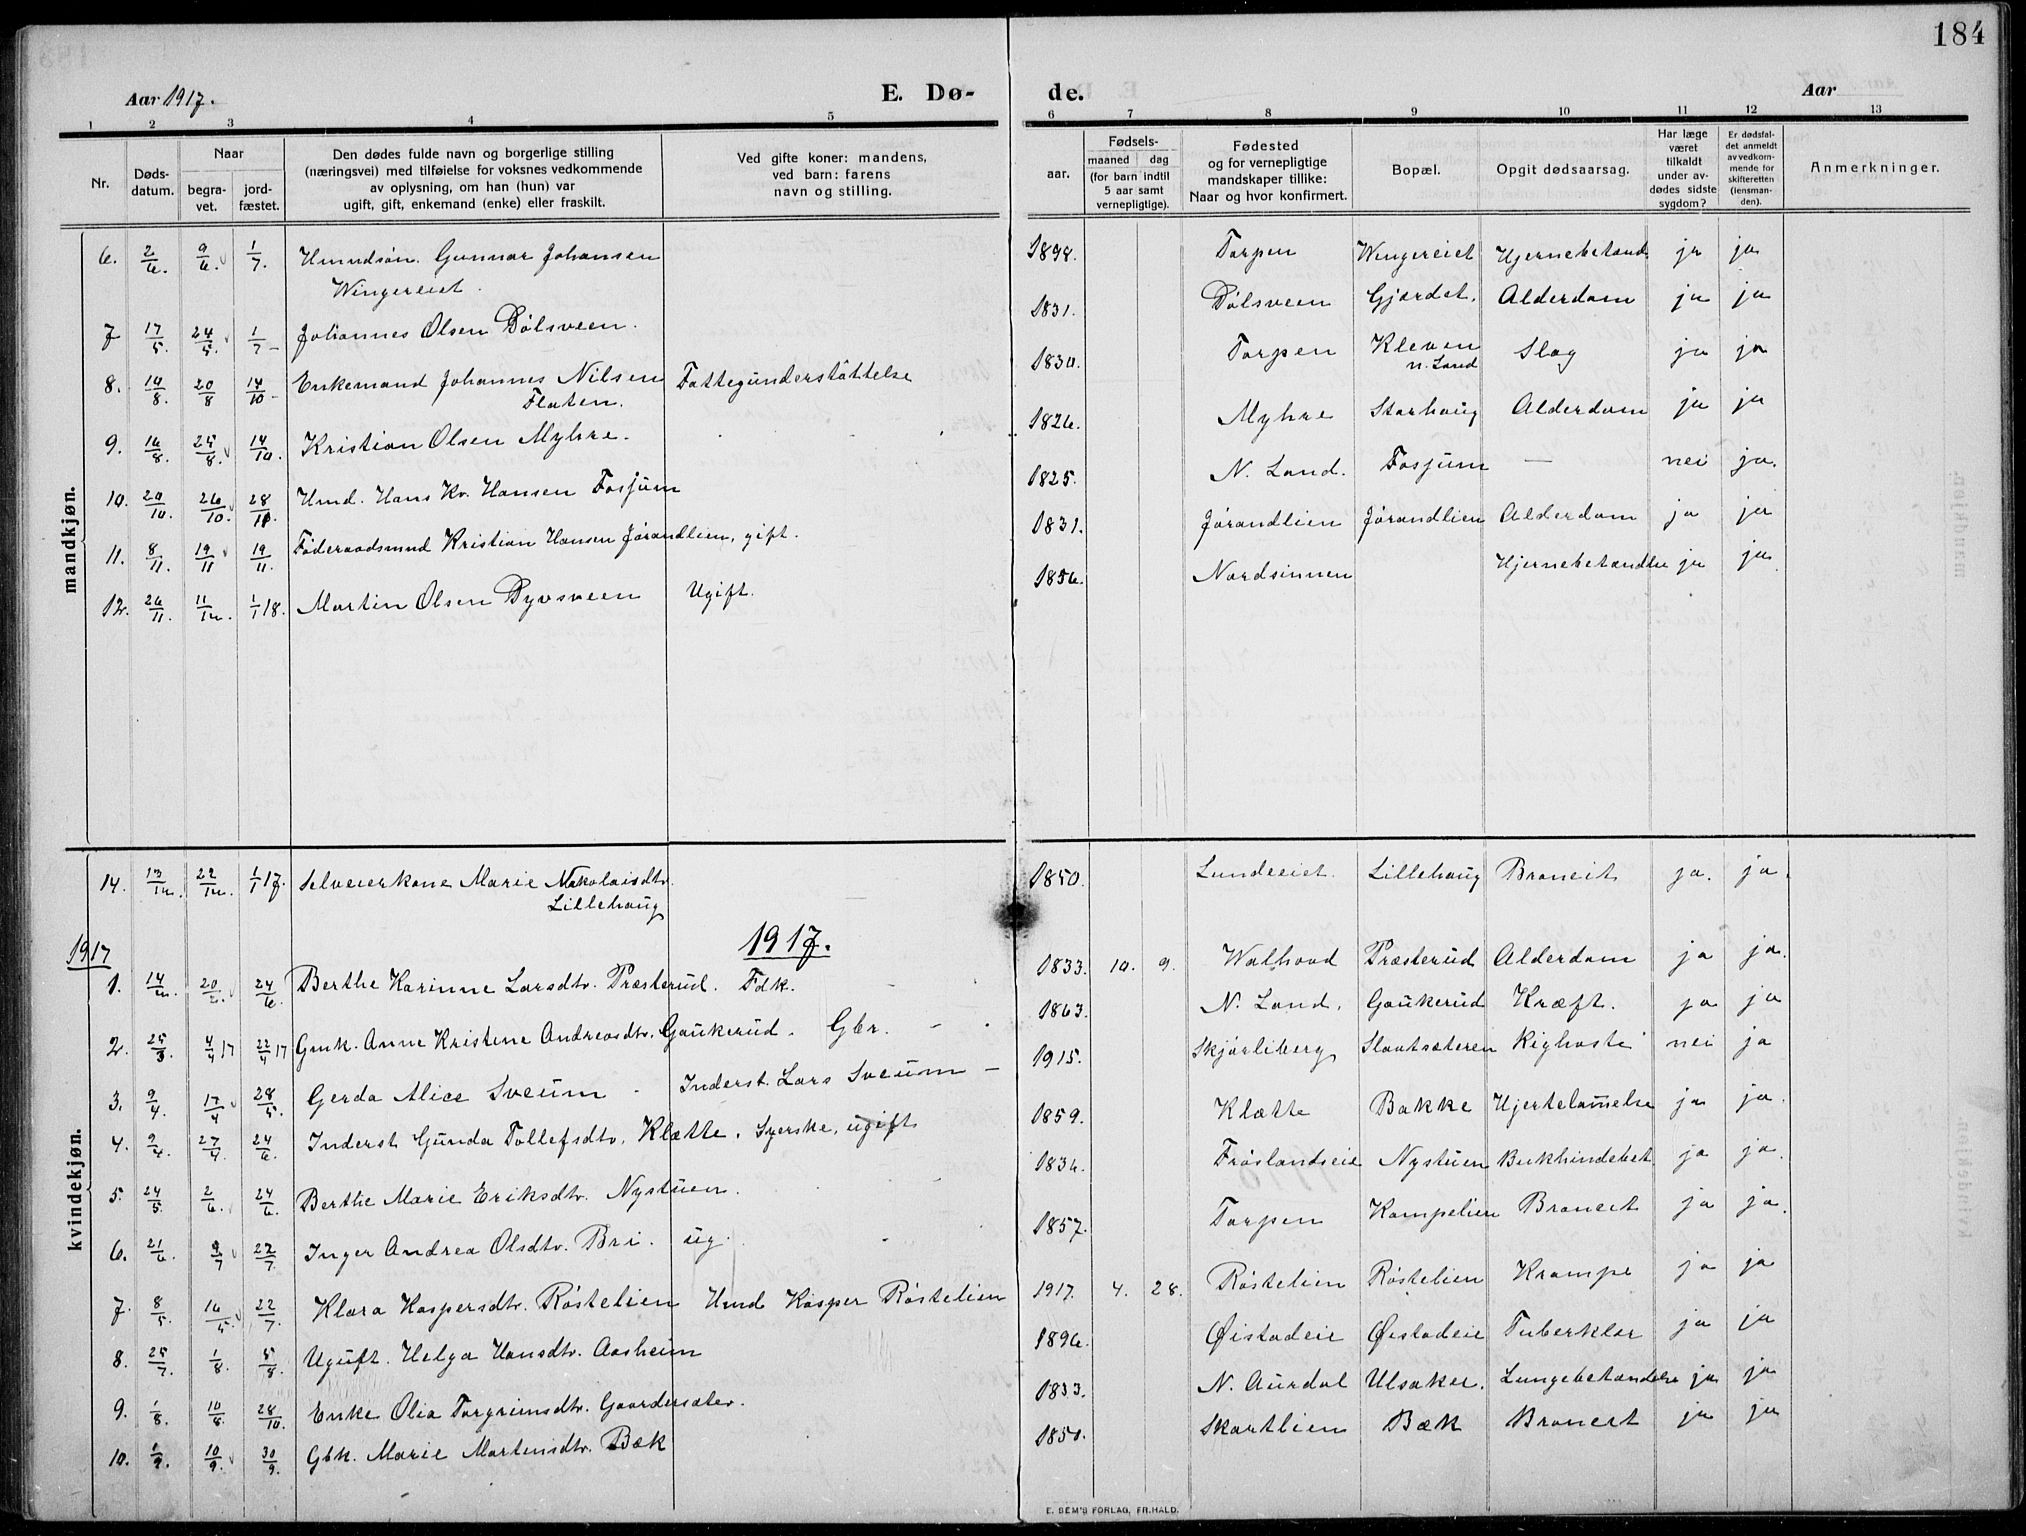 184
Aar 1917.
E. Dø-
de.
Aar
1 2 3 4 5
6 7 8 9 10 11 12 13
Nr.
Døds-
datum.
Naar
begra-
vet.
jord-
fæstet.
Den dødes fulde navn og borgerlige stilling
(næringsvei) med tilføielse for voksnes vedkommende
av oplysning, om han (hun) var
ugift, gift, enkemand (enke) eller fraskilt.
Ved gifte koner: mandens,
ved barn: farens
navn og stilling.
aar.
Fødsels-
maaned dag
(for barn indtil
5 aar samt
vernepligtige).
Fødested
og for vernepligtige
mandskaper tillike:
Naar og hvor konfirmert.
Bopæl.
Opgit dødsaarsag.
Har læge
været
tilkaldt
under av-
dødes sidste
sygdom?
Er dødsfal-
det anmeldt
av vedkom-
mende for
skifteretten
(lensman-
den).
Anmerkninger.
mandkjøn.
6. 2/6. 9/6. 1/7. Gunnar Johansen
Wingereiet.
1898. Torpen Wingereiet ja ja
7 17/5. 24/5. 1/7 - Johannes Olsen Dølsveen.
1831. Dølsveen Gjærdet. Alderdom ja ja
8. 14/8. 20/8 14/10 - Enkemand Johannes Nilsen Fattigunderstøttelse
Flaten.
1830. Torpen Kleven
n. Land
Slag ja ja
9. 16/8. 25/8. 14/10. Kristian Olsen Myhre.
1826. Myhre Storhaug Alderdom ja ja
10. 20/10. 26/10. Hans Kr. Hansen Fosjum
1825. N. Land. Fosjum — nei ja.
11. 8/11. 19/11 19/11. Føderaadsmnd Kristian Hansen Jørandlien, gift.
1831. Jørandlien Jørandlien Alderdom ja ja
12. 26/11. 11/12. 1/1 18. Martin Olsen Dyvsveen Ugift.
1856. Nordsinnen Hjernebetændlse ja ja
kvindekjøn.
14. 13/12. 22/12. 1/1 17. Selveierkone Marie Nikolaisdtr.
Lillehaug
1850. Lundeeiet. Lillehaug Broncit ja. ja.
1917
1917.
1. 14/2. 20/2. 24/6. Berthe Karinne Larsdtr. Præsterud. Fdk.
1833. 10. 9. Walhovd Præsterud Alderdom ja ja.
2. 25/3. 4/4 17 22/4 17 Gmk. Anne Kristine Andreasdtr. Gaukerud. Gbr.
1863. N. Land. Gaukerud Kræft. ja ja
3. 9/4. 17/4 28/5. Gerda Alice Sveum - Inderst. Lars Sveum -
1915. Skjørliberg Slaatsæteren Kighoste nei ja
4. 9/4. 27/4 24/6. Inderst Gunda Tollefsdtr. Klætte. Syerske, ugift
1859. Klætte Bakke Hjertelammelse ja ja.
5. 24/5. 2/6. 24/6. Berthe Marie Eriksdtr. Nystuen.
Frøslandseie Nystuen Bukhindebet. ja ja.
6. 21/6. 9/7 22/7. Inger Andrea Olsdtr. Bri. ug.
1857. Torpen Kampelien Broncit ja ja.
7. 8/5. 16/5. 22/7. Klara Kaspersdtr. Røstelien Kasper Røstelien
1917. 4. 28. Røstelien Røstelien Krampe ja ja
8. 25/7. 1/8. 5/8. Ugift. Helga Hansdtr. Aasheim
1896. Øistadeie Øistadeie Tuberklor ja ja
9. 1/8. 10/8. 28/10. Enke Olia Torgrimsdtr. Gaardersæter.
1833. N. Aurdal Ulsaker. Lungebetændelse ja ja
10. 1/9. 10/9. 30/9. Gbk. Marie Martinsdtr. Bæk
1850. Skartlien Bæk Broncit ja ja
E. SEM'S FORLAG, FR.HALD.